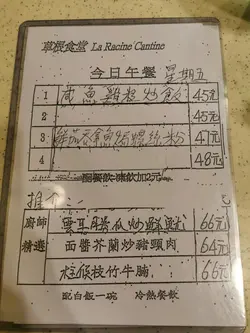 草根食堂 La Racine Cantine
今日午餐 星期五
1 咸魚雞粒炒飯 45元
2 45元
3 鮮茄吞拿魚焗螺絲粉 47元
4 48元
圈餐飲 凍飲加2元
推介
廚師 雲耳勝瓜炒鮮魷 66元
精選 面醬芥蘭炒豬頸肉 64元
柱侯枝竹牛腩 66元
配白飯一碗 冷熱餐飲